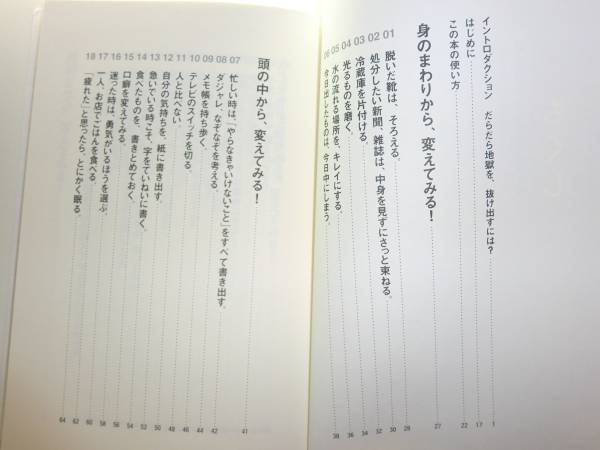 イントロダクション　だらだら地獄を、抜け出すには？ 1
はじめに 17
この本の使い方 22
身のまわりから、変えてみる！ 27
01 脱いだ靴は、そろえる。 28
02 処分したい新聞、雑誌は、中身を見ずにさっと束ねる。 30
03 冷蔵庫を片付ける。 32
04 光るものを磨く。 34
05 水の流れる場所を、キレイにする。 36
06 今日出したものは、今日中にしまう。 38
頭の中から、変えてみる！ 41
07 忙しい時は、「やらなきゃいけないこと」をすべて書き出す。 42
08 ダジャレ、なぞなぞを考える。 44
09 メモ帳を持ち歩く。 46
10 テレビのスイッチを切る。 48
11 人と比べない。 50
12 自分の気持ちを、紙に書き出す。 52
13 急いでいる時こそ、字をていねいに書く。 54
14 食べたものを、書きとめておく。 56
15 口癖を変えてみる。 58
16 迷った時は、勇気がいるほうを選ぶ。 60
17 一人、お店でごはんを食べる。 62
18 「疲れた」と思ったら、とにかく眠る。 64